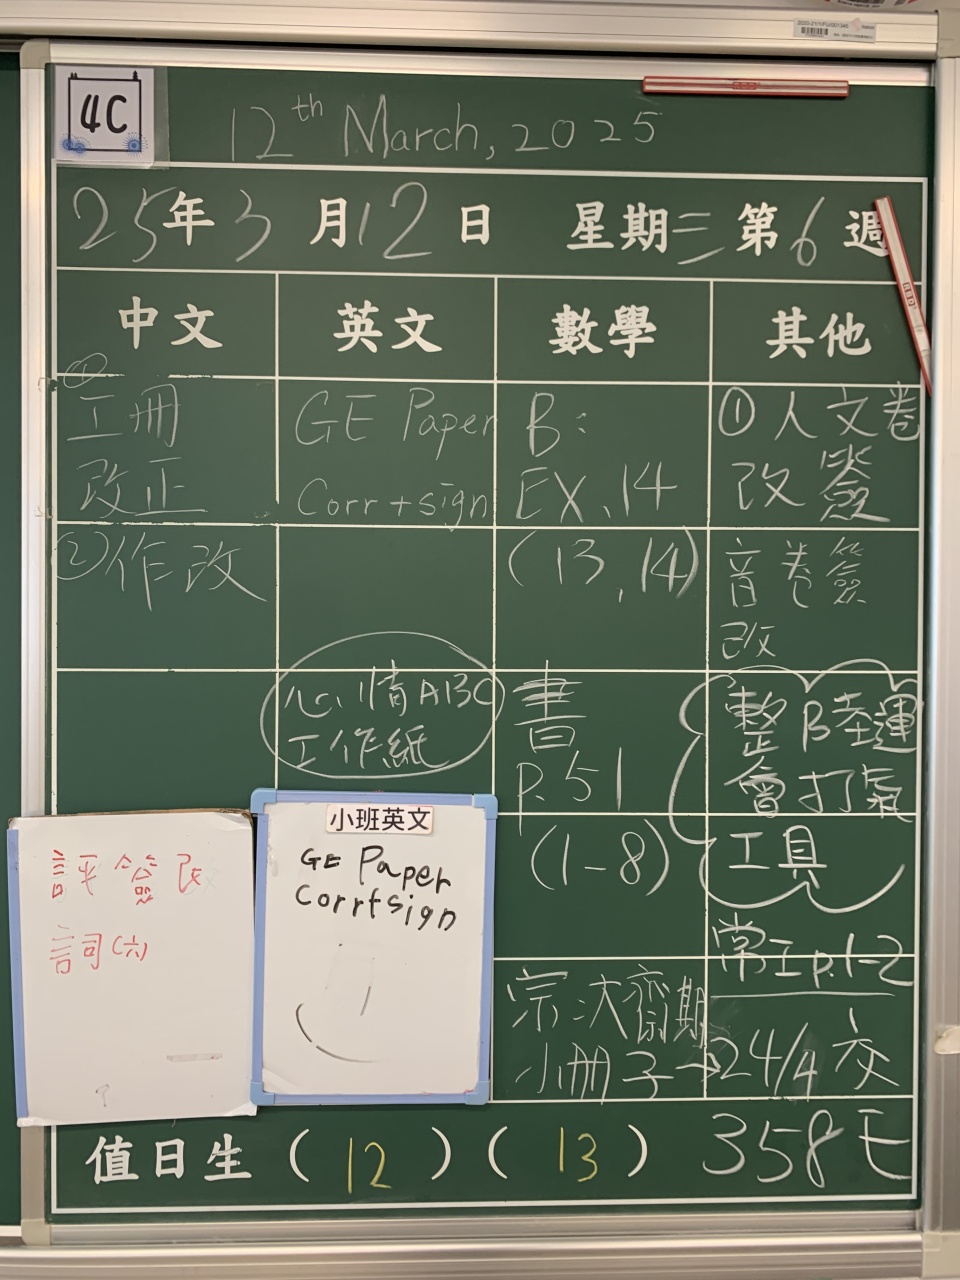 4C
12th March, 2025
25年3月12日 星期三 第6週
中文 英文 數學 其他
①
工冊
改正
②作改
GE Paper
Corr + sign
心情ABC
工作紙
B:
EX.14
(13,14)
書
P.51
(1-8)
①人文卷
改簽
音卷簽
改
整B陸運
會打氣
工具
常工p.1-2
宗次齋期
小冊子→24/4交
評簽改
詞(六)
小班英文
GE Paper
Corr+sign
值日生(12)(13)